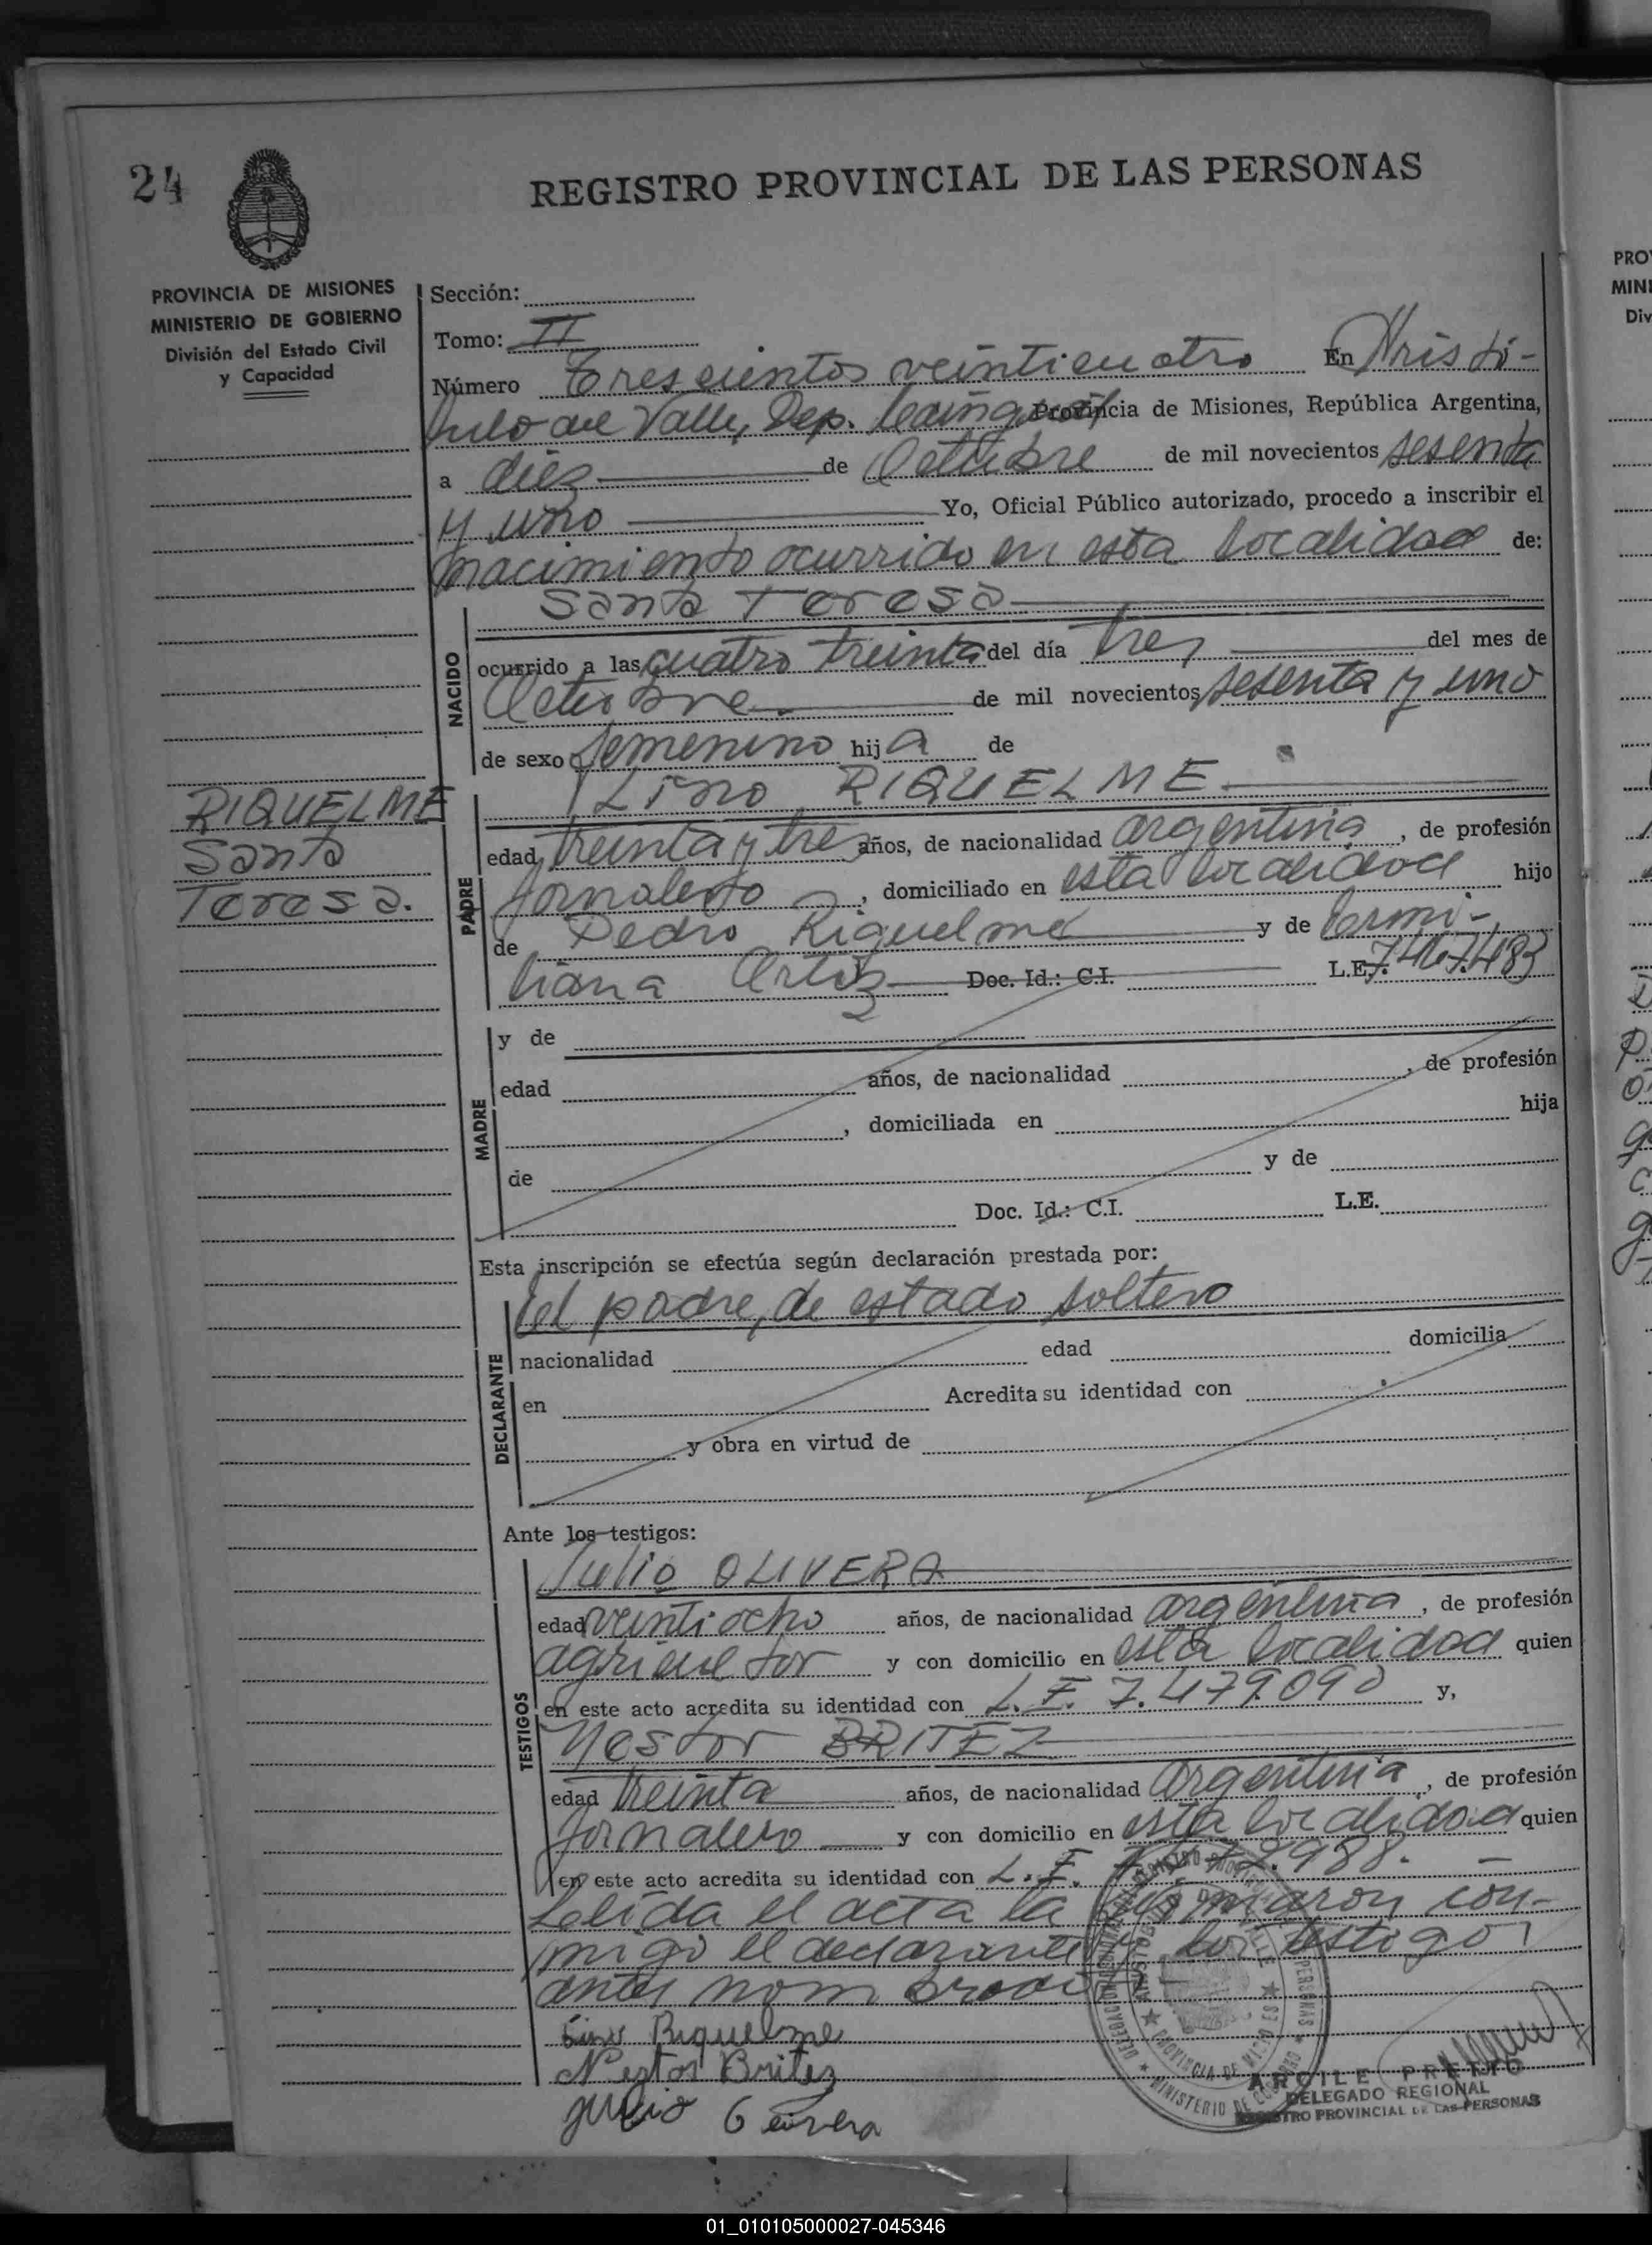 24
REGISTRO PROVINCIAL DE LAS PERSONAS
PROVINCIA DE MISIONES
MINISTERIO DE GOBIERNO
División del Estado Civil
y Capacidad
Sección:
Tomo: II
Número Trescientos veinticuatro En Aristó-
bulo del Valle, Dep. Cainguás Provincia de Misiones, República Argentina,
a diez de Octubre de mil novecientos sesenta
y uno Yo, Oficial Público autorizado, procedo a inscribir el
nacimiento ocurrido en esta localidad de:
NACIDO
Santa Teresa
ocurrido a las cuatro treinta del día tres del mes de
Octubre de mil novecientos sesenta y uno
de sexo femenino hija de
RIQUELME
Santa
Teresa.
PADRE
Lino RIQUELME
edad treinta y tres años, de nacionalidad argentina, de profesión
jornalero, domiciliado en esta localidad hijo
de Pedro Riquelme y de
Ortiz Doc. Id.: C.I. L.E. 7.467.483
MADRE
y de
edad años, de nacionalidad , de profesión
, domiciliada en hija
de y de
Doc. Id.: C.I. L.E.
Esta inscripción se efectúa según declaración prestada por:
DECLARANTE
el padre, de estado soltero
nacionalidad edad domicilia
en Acredita su identidad con
y obra en virtud de
Ante los testigos:
TESTIGOS
Julio OLIVERA
edad veintiocho años, de nacionalidad argentina, de profesión
agricultor y con domicilio en esta localidad quien
en este acto acredita su identidad con L.E. 7.479.090 y,
Nestor BRITEZ
edad treinta años, de nacionalidad argentina, de profesión
jornalero y con domicilio en esta localidad quien
en este acto acredita su identidad con L.E.
Leída el acta la firmaron con-
migo el declarante y los testigos
antes nombrados
Lino Riquelme
Nestor Britez
Julio
ARGILE PRETTO
DELEGADO REGIONAL
REGISTRO PROVINCIAL DE LAS PERSONAS
01_010105000027-045346